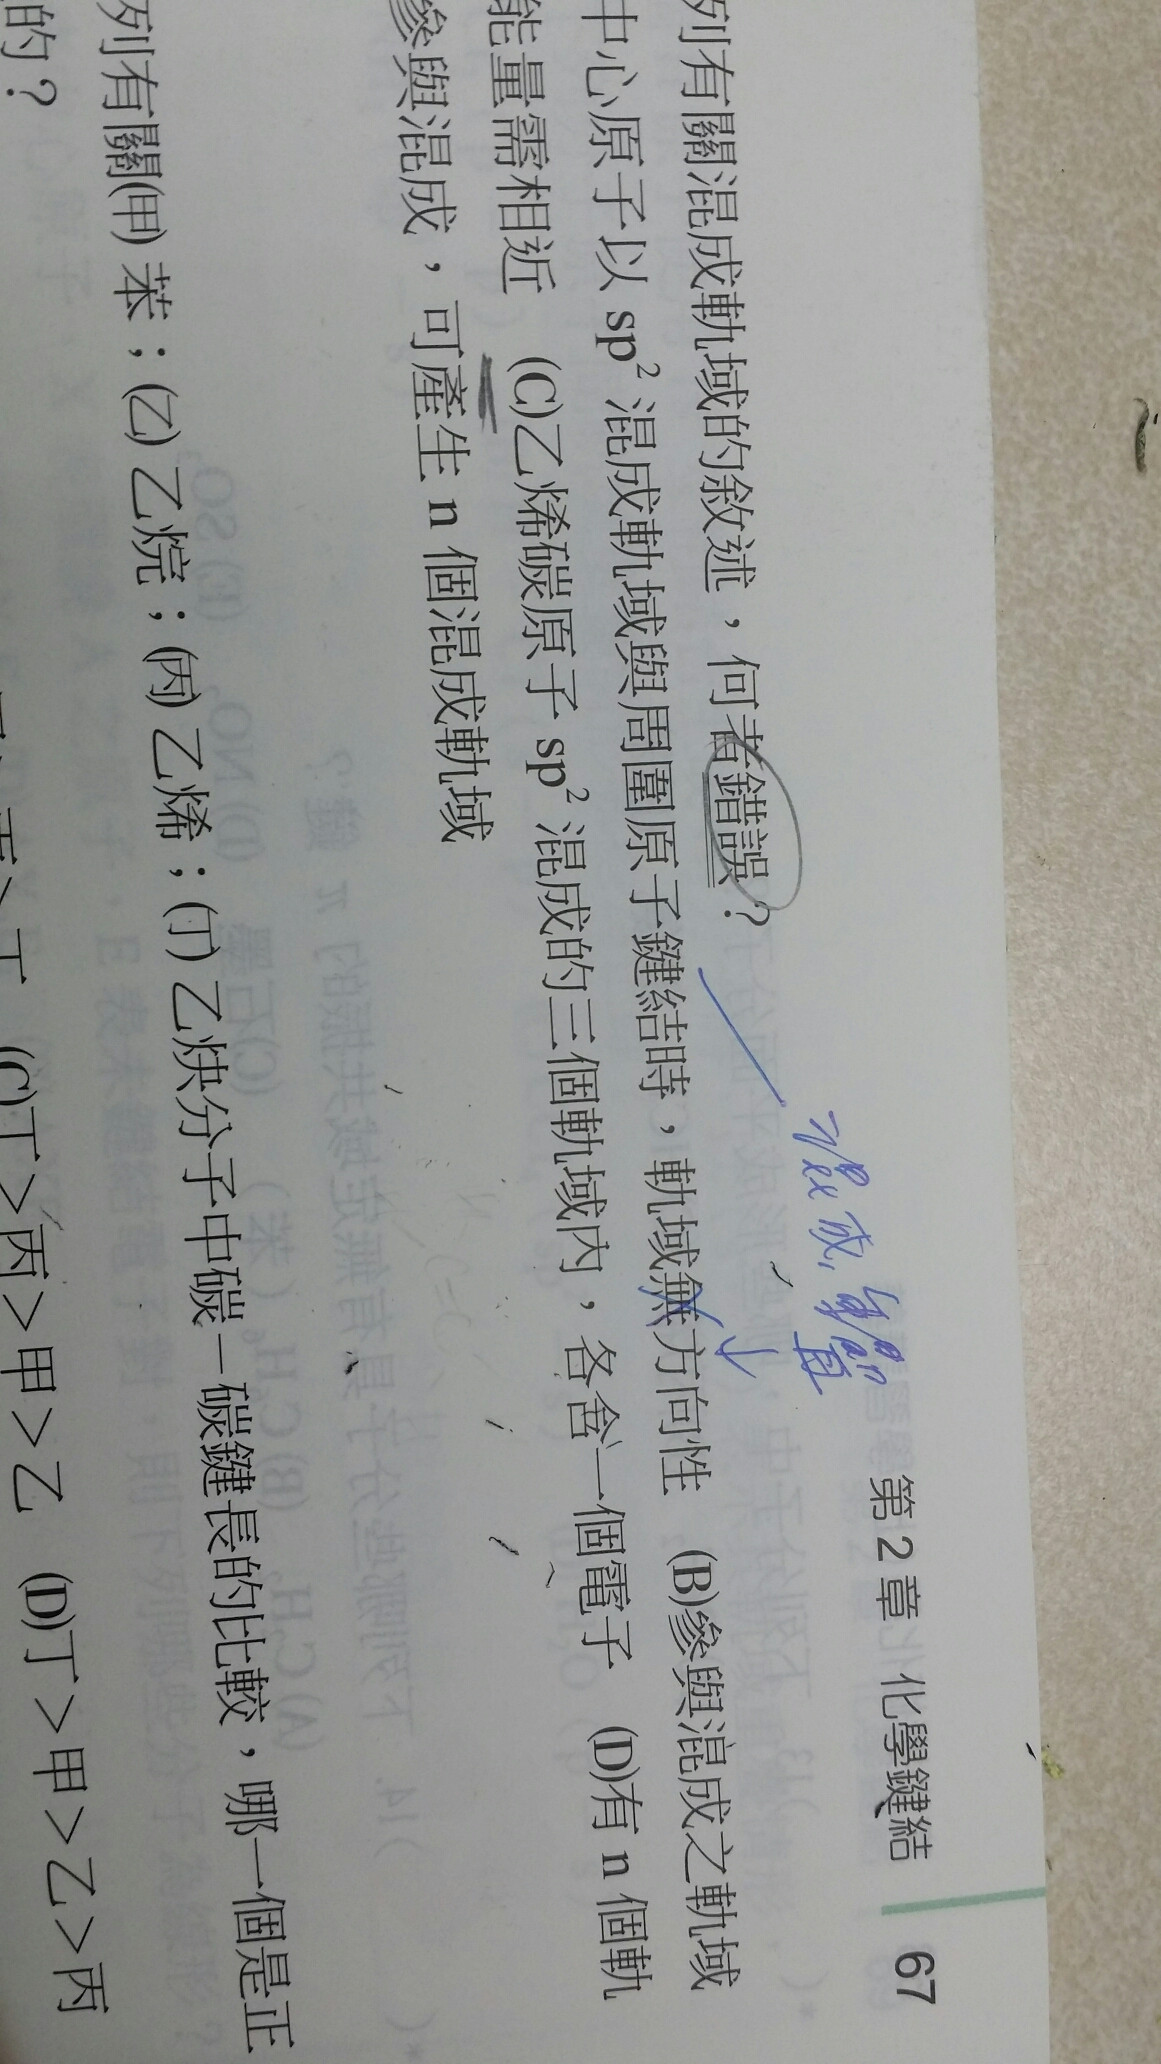 第 2 章 化學鍵結 67
列有關混成軌域的敘述，何者錯誤？
中心原子以 sp² 混成軌域與周圍原子鍵結時，軌域無方向性 (B)參與混成之軌域
能量需相近 (C)乙烯碳原子 sp² 混成的三個軌域內，各含一個電子 (D)有 n 個軌
參與混成，可產生 n 個混成軌域
列有關(甲) 苯；(乙) 乙烷；(丙) 乙烯；(丁) 乙炔分子中碳－碳鍵長的比較，哪一個是正
的？
(C)丁＞丙＞甲＞乙 (D)丁＞甲＞乙＞丙